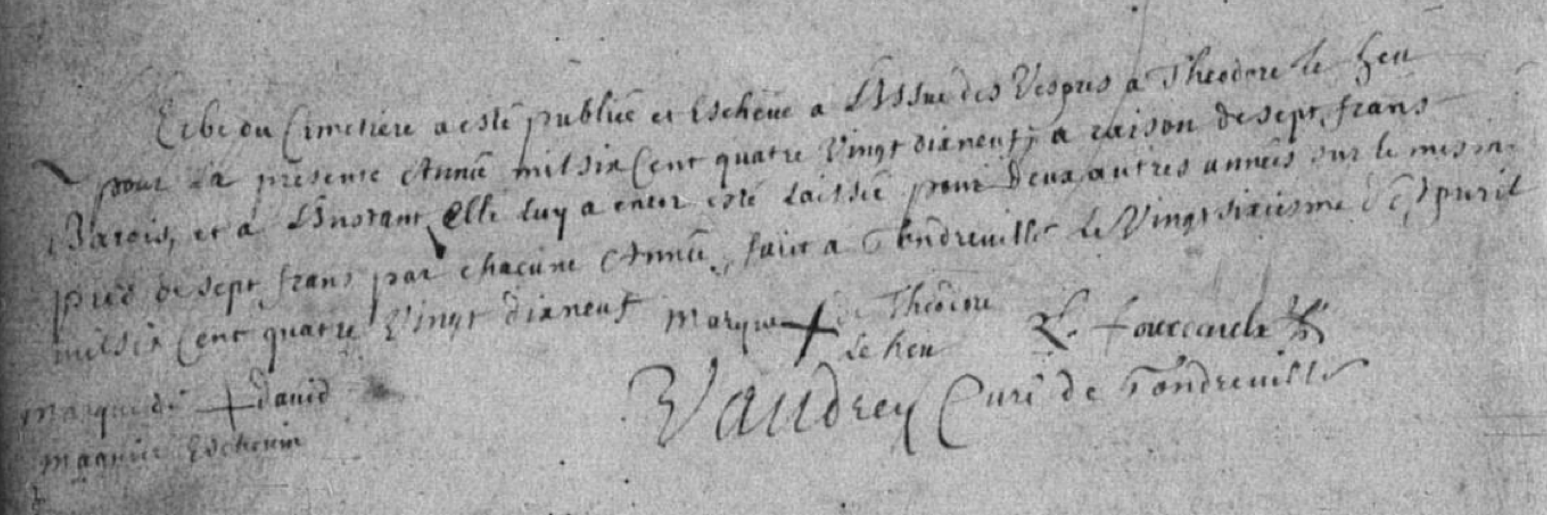 Erbe du Cimetiere a esté publiée et Eschëue a L'Issue des Vespres a Theodore le heu
pour La presente Année mil six Cent quatre Vingt dixneuf, a raison de sept frans
Barois, et a L'Instant Elle luy a encor esté Laissée pour Deux autres années sur le mesme
pied de sept frans par chacune Année, fait a Tondreville le Vingt sixiesme d'
mil six Cent quatre Vingt dixneuf Marque + de Theodore
le heu
Marque de + David
Eschevin
Vaudrey Curé de Tondreville